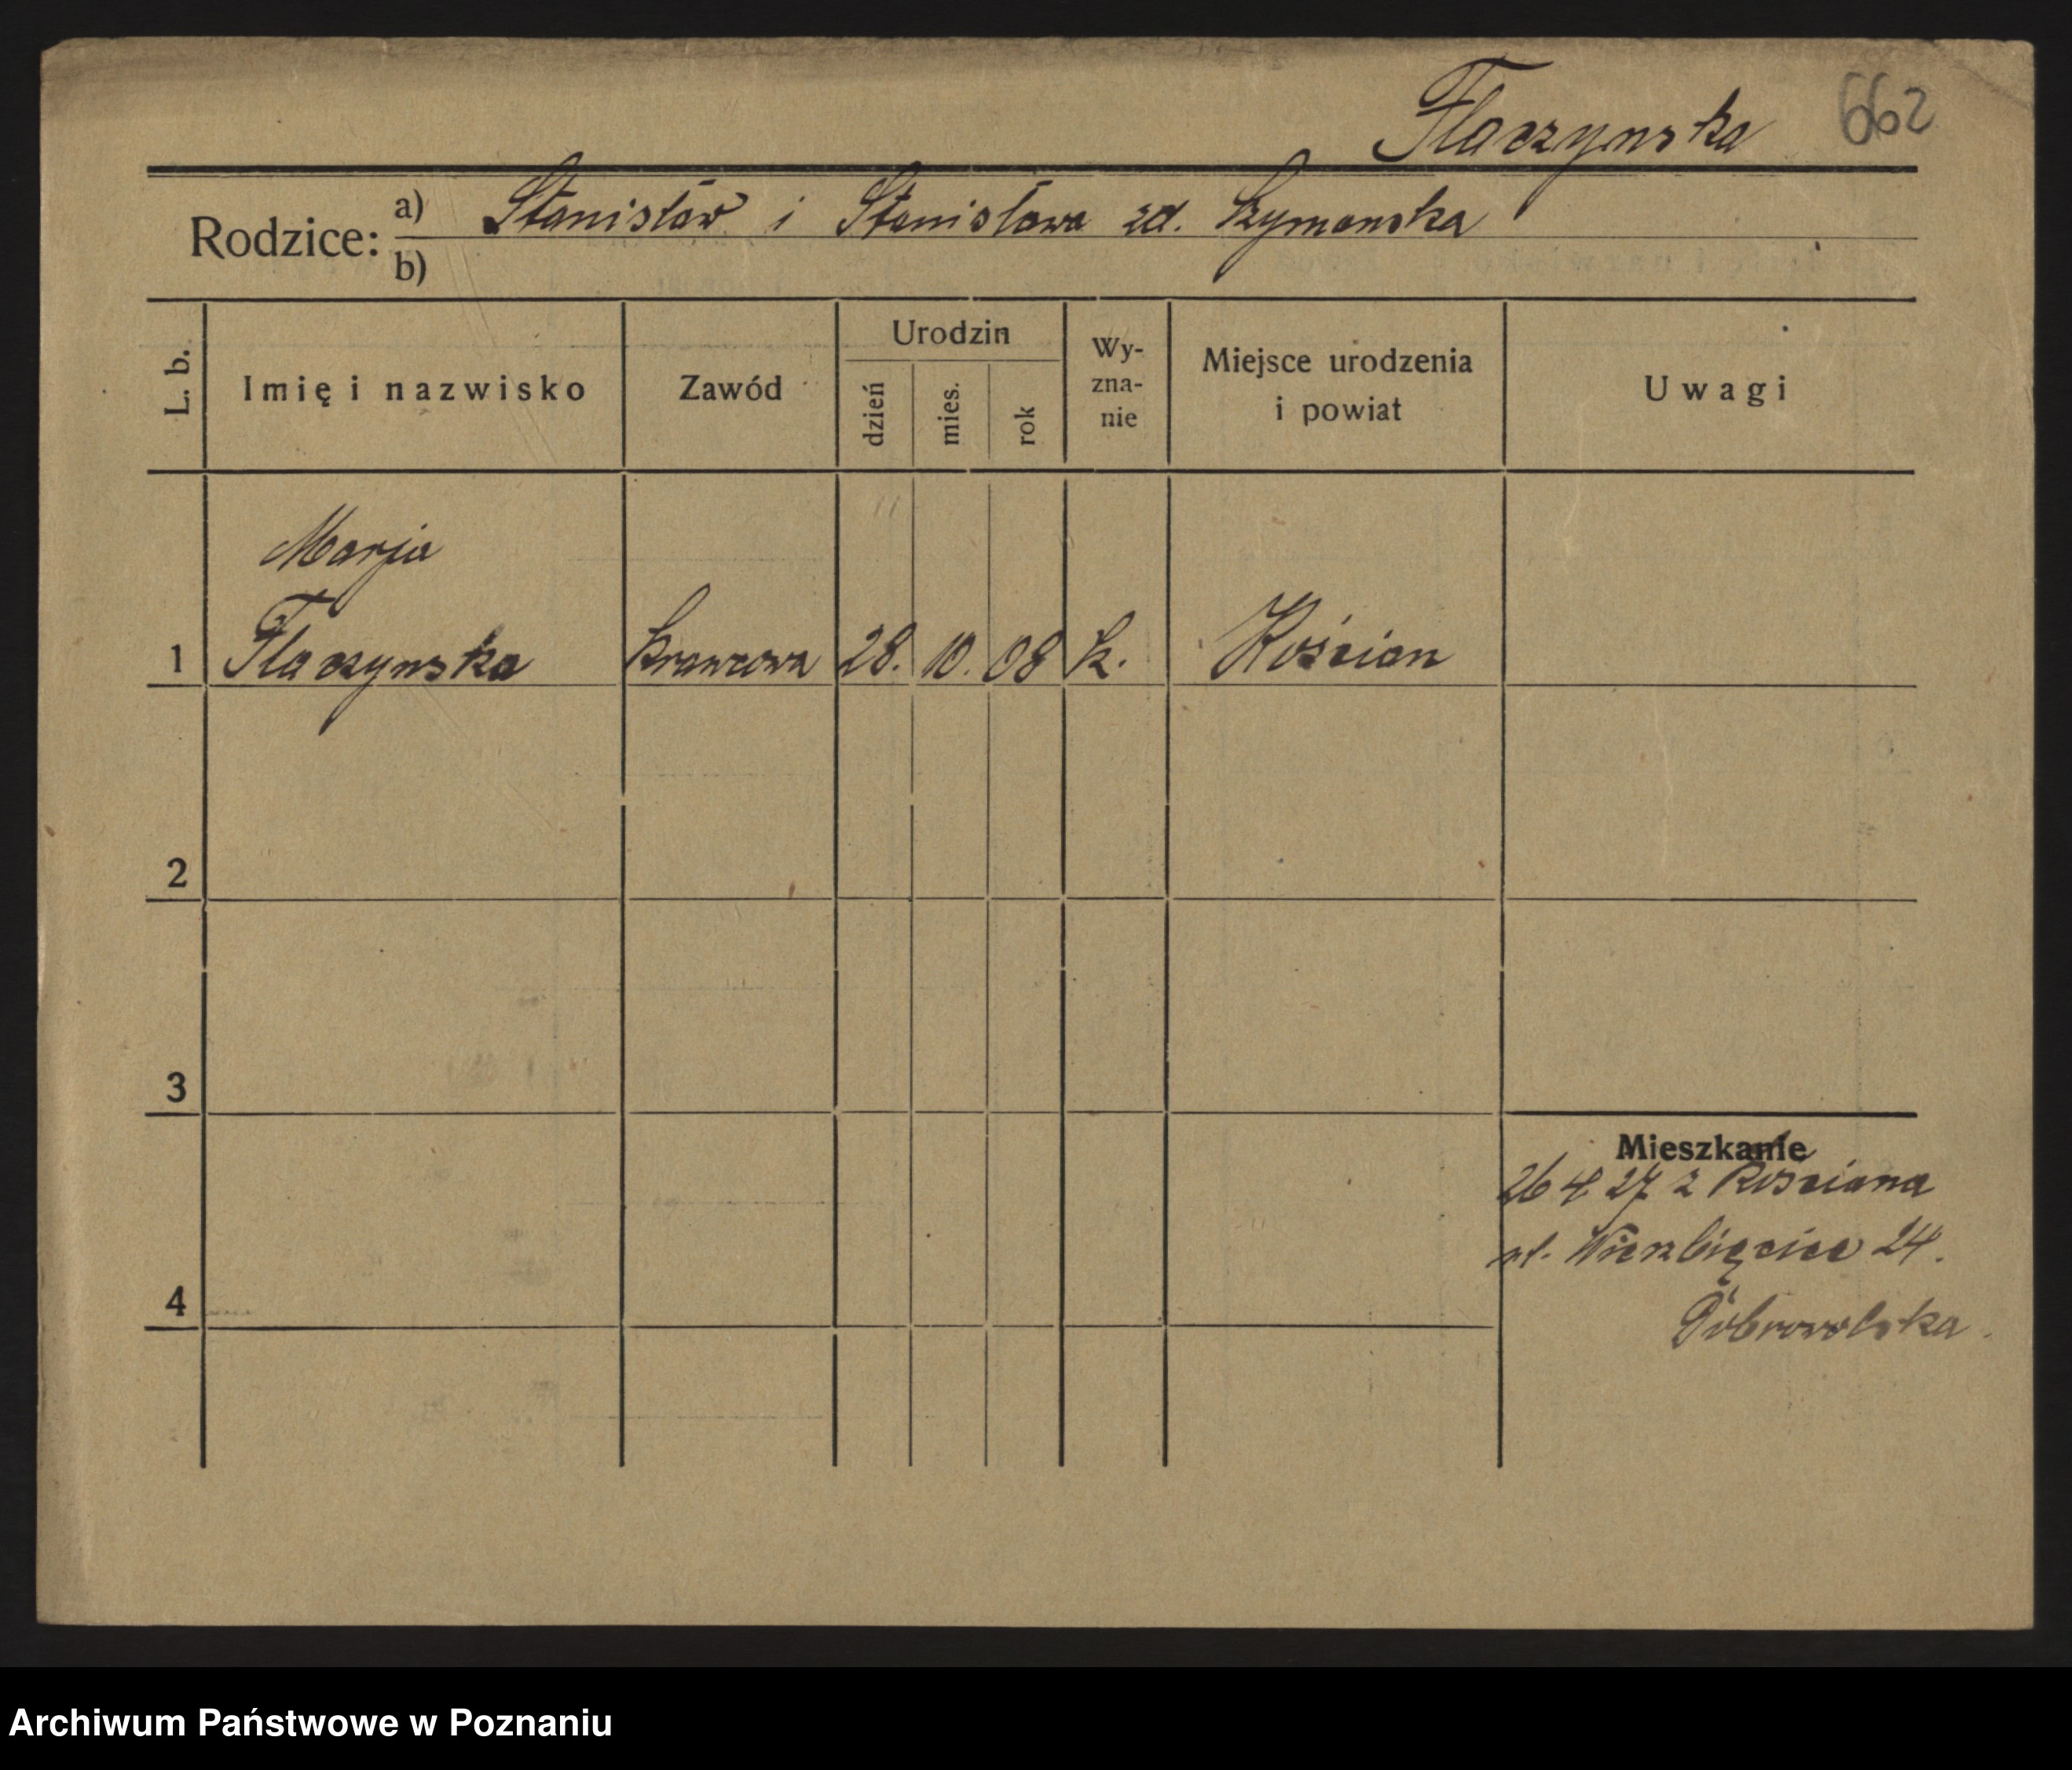 Flaczynska 662
Rodzice: a) Stanisław i Stanisława zd. Szymanska
b)
L. b. Imię i nazwisko Zawód Urodzin dzień mies. rok Wy-zna-nie Miejsce urodzenia i powiat Uwagi
Marja
1 Flaczynska krawcowa 28. 10. 08 k. Kościan
2
3
Mieszkanie
26 4 27 z Kościana
ul. Wierzbięcice 24.
4
Dobrowolska.
Archiwum Państwowe w Poznaniu